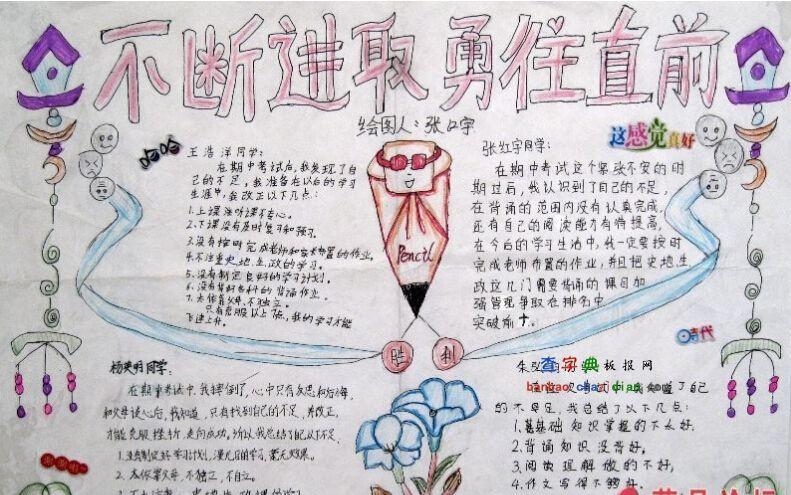 不断进取 勇往直前
绘图人：张口宇
哈哈
王浩洋同学：
在期中考试后，我发现了自
己的不足，我准备在以后的学习
生涯中，我改正以下几点：
1.上课注听课不专心。
2.下课没有及时复习和预习。
3.没有按时完成老师和家长布置的作业。
4.不注重史、地、生、政的学习。
5.没有制定良好的学习计划。
6.没有背好各科的背诵作业。
7.太依靠父母，不独立。
只有克服以上7点，我的学习才能
飞速上升。
这感觉真好
张红宇同学：
在期中考试这个紧张不安的时
期过后，我认识到了自己的不足，
在背诵的范围内没有认真完成，
还有自己的阅读能力有待提高，
在今后的学习生活中，我一定要按时
完成老师布置的作业，并且把史地生
政这几门需要背诵的课目加
强管理争取在排名中
突破前十。
Pencil
胜利
时代
杨奕明同学：
在期中考试中，我摔倒了，心中只有反思和后悔
和父母谈心后，我知道，只有找到自己的不足，并改正，
才能克服挫折，走向成功。所以我总结了自己以下不足：
1.没有制定好学习计划，漫无目的学习，毫无效果。
2.太依靠父母，不独立，不自立。
查字典板报网
banbao.chazidian.com
了自己
的不足，我总结了以下几点：
1.基础知识掌握的不太好。
2.背诵知识没背好。
3.阅读理解做的不好，
4.作文写得不够好。